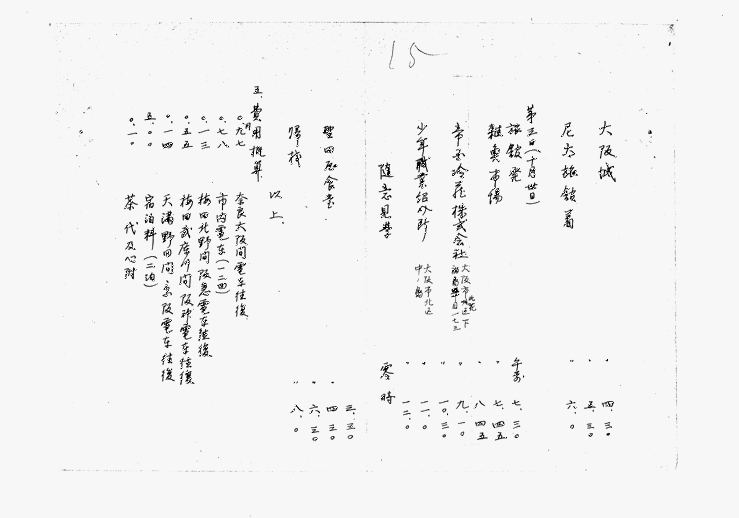 15
大阪城 〃 四.三〇
〃 五.三〇
尼大旅館着 〃 六.〇
第三日(十月卅日)
旅館発 午前 七.三〇
〃 七.四五
雑魚市場 〃 八.四五
帝国冷蔵株式会社 〃 九.一〇
〃 一〇.三〇
少年職業紹介所 大阪市北区中ノ島 〃 一一.〇
〃 一二.〇
随意見学 零時
三.三〇
豊田昼食堂 〃 四.三〇
〃 六.三〇
帰校 〃 八.〇
以上.
五.費用概算
〇.九七 奈良大阪間電車往復
〇.七八 市内電車(二回)
〇.一三 梅田北野間阪急電車往復
〇.五五 梅田武庫川間阪神電車往復
〇.一四 天満野田間京阪電車往復
五.〇〇 宿泊料(二泊)
〇.一〇 茶代及心附